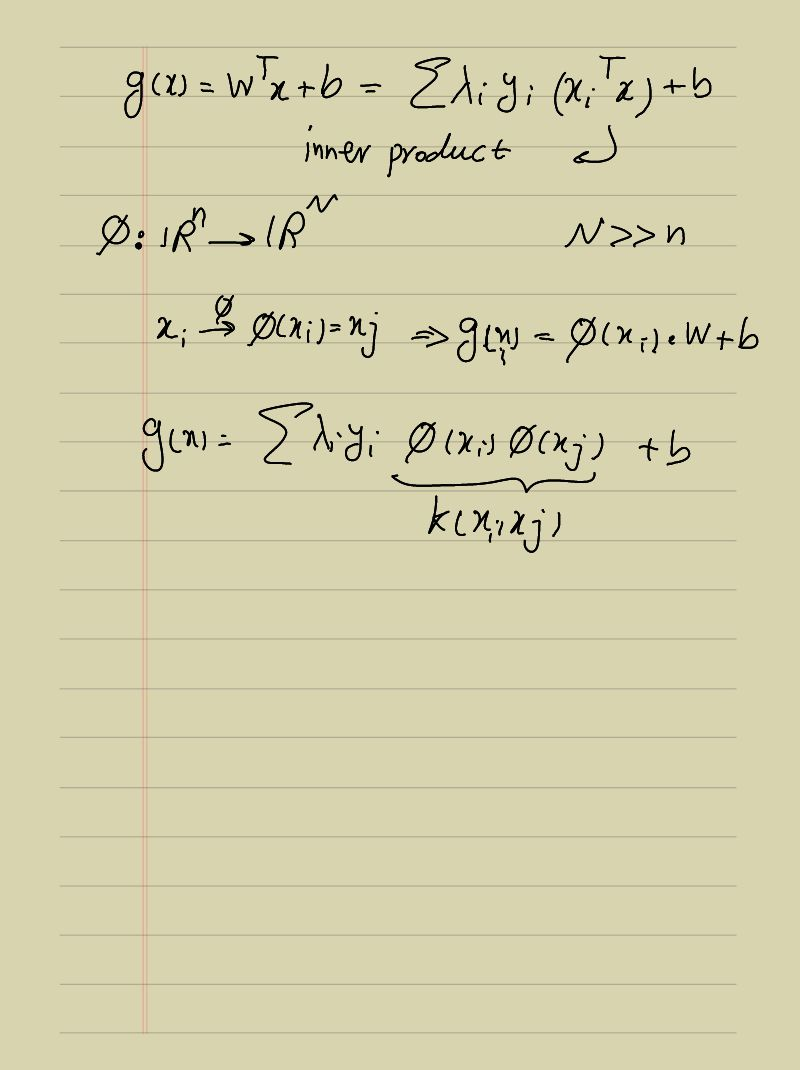 g(x) = wᵀx + b = ∑ λᵢ yᵢ (xᵢᵀx) + b
inner product ↲
Ø: ℝⁿ → ℝᴺ N >> n
xᵢ →^Ø Ø(xᵢ) = xj ⇒ g(xᵢ) = Ø(xᵢ) • w + b
g(x) = ∑ λᵢ yᵢ Ø(xᵢ) Ø(xj) + b
k(xᵢ, xj)